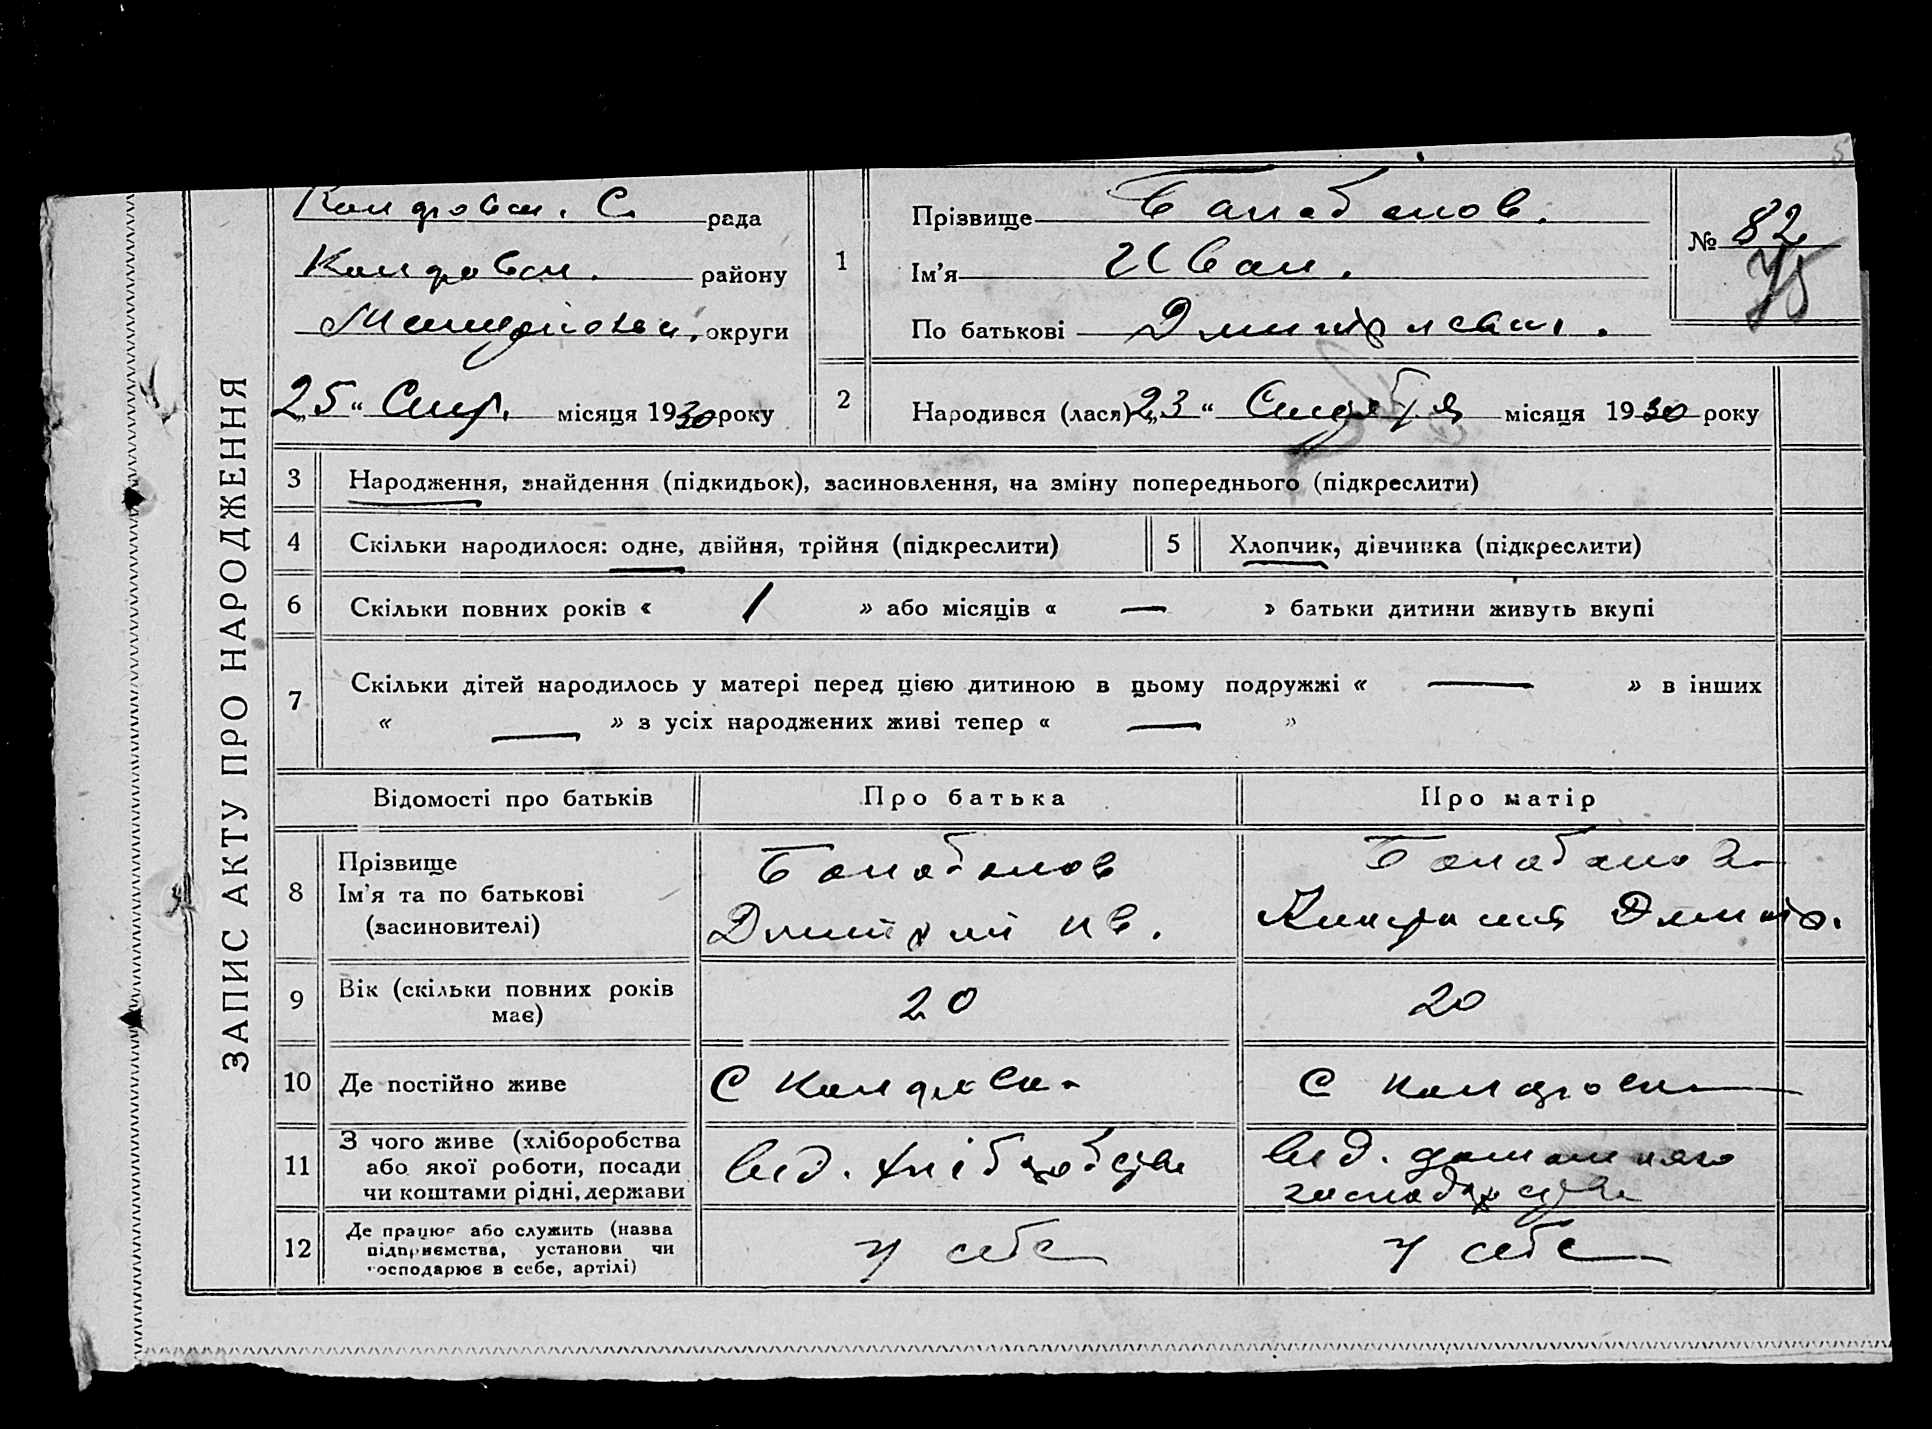 ЗАПИС АКТУ ПРО НАРОДЖЕННЯ
С. рада
району
округи
„25“ місяця 1930 року
1
Прізвище Балабанов.
Ім'я Иван.
По батькові
№ 82
2
Народився (лася) „23“ місяця 1930 року
3
Народження, знайдення (підкидьок), засиновлення, на зміну попереднього (підкреслити)
4
Скільки народилося: одне, двійня, трійня (підкреслити)
5
Хлопчик, дівчинка (підкреслити)
6
Скільки повних років « 1 » або місяців « — » батьки дитини живуть вкупі
7
Скільки дітей народилось у матері перед цією дитиною в цьому подружжі « — » в інших
« — » з усіх народжених живі тепер « — »
Відомості про батьків
Про батька
Про матір
8
Прізвище
Ім'я та по батькові
(засиновителі)
Балабанов
Дмитрий Ив.
Балабанова
Дмитр.
9
Вік (скільки повних років
має)
20
20
10
Де постійно живе
С
С
11
З чого живе (хліборобства
або якої роботи, посади
чи коштами рідні, держави
від. хліборобства
від. домашнього
господарства
12
Де працює або служить (назва
підприємства, установи чи
господарює в себе, артілі)
у себе
у себе